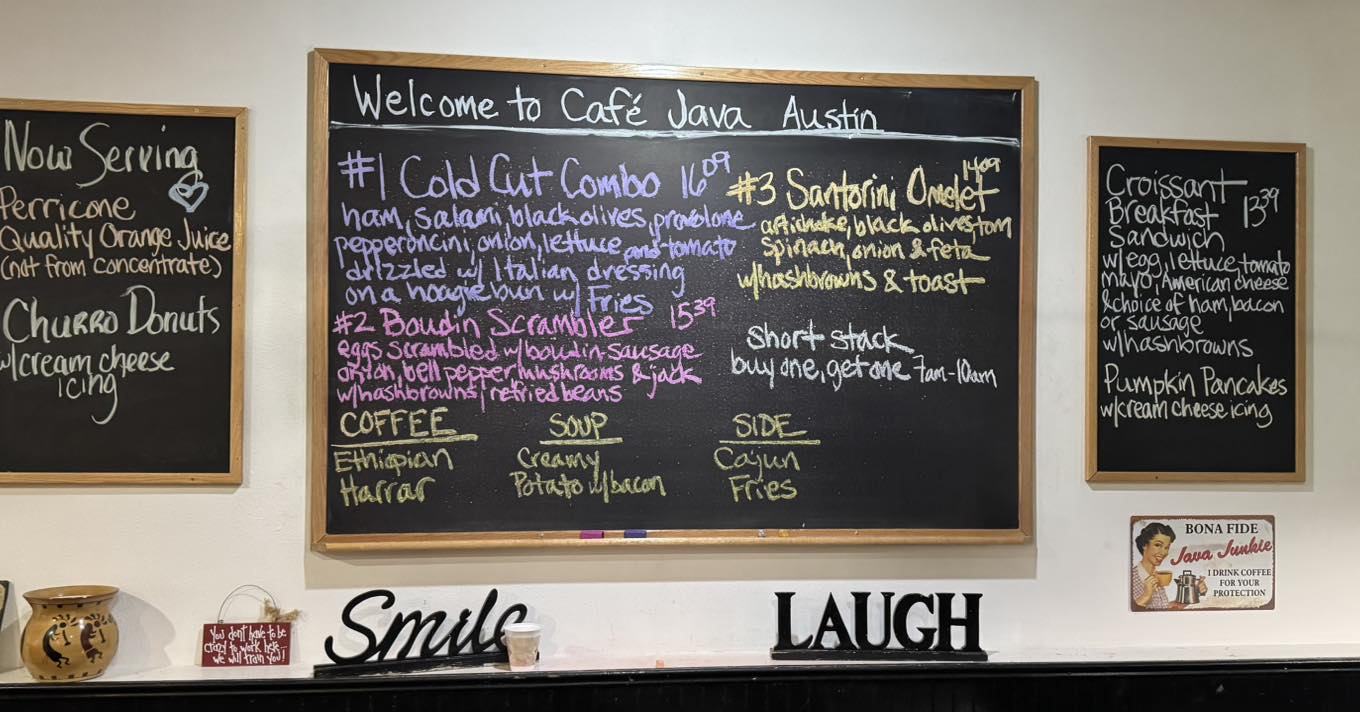 Now Serving
Perricone
Quality Orange Juice
(not from concentrate)
Churro Donuts
w/cream cheese
icing
Welcome to Café Java Austin
#1 Cold Cut Combo 16 09
ham, salami, black olives, provolone
pepperoncini, onion, lettuce and tomato
drizzled w/ Italian dressing
on a hoagie bun w/ Fries
#2 Boudin Scrambler 15 39
eggs scrambled w/boudin sausage
onion, bell pepper, mushrooms & jack
w/hashbrowns, refried beans
#3 Santorini Omelet 14 09
artichoke, black olives, tom
spinach, onion & feta
w/hashbrowns & toast
Short stack
buy one, get one 7am-10am
COFFEE
Ethiopian
Harrar
SOUP
Creamy
Potato w/bacon
SIDE
Cajun
Fries
Croissant
Breakfast 13 39
Sandwich
w/egg, lettuce, tomato
mayo, American cheese
& choice of ham, bacon
or sausage
w/hashbrowns
Pumpkin Pancakes
w/cream cheese icing
BONA FIDE
Java Junkie
I DRINK COFFEE
FOR YOUR
PROTECTION
You don't have to be
crazy to work here...
we will train you!
Smile
LAUGH